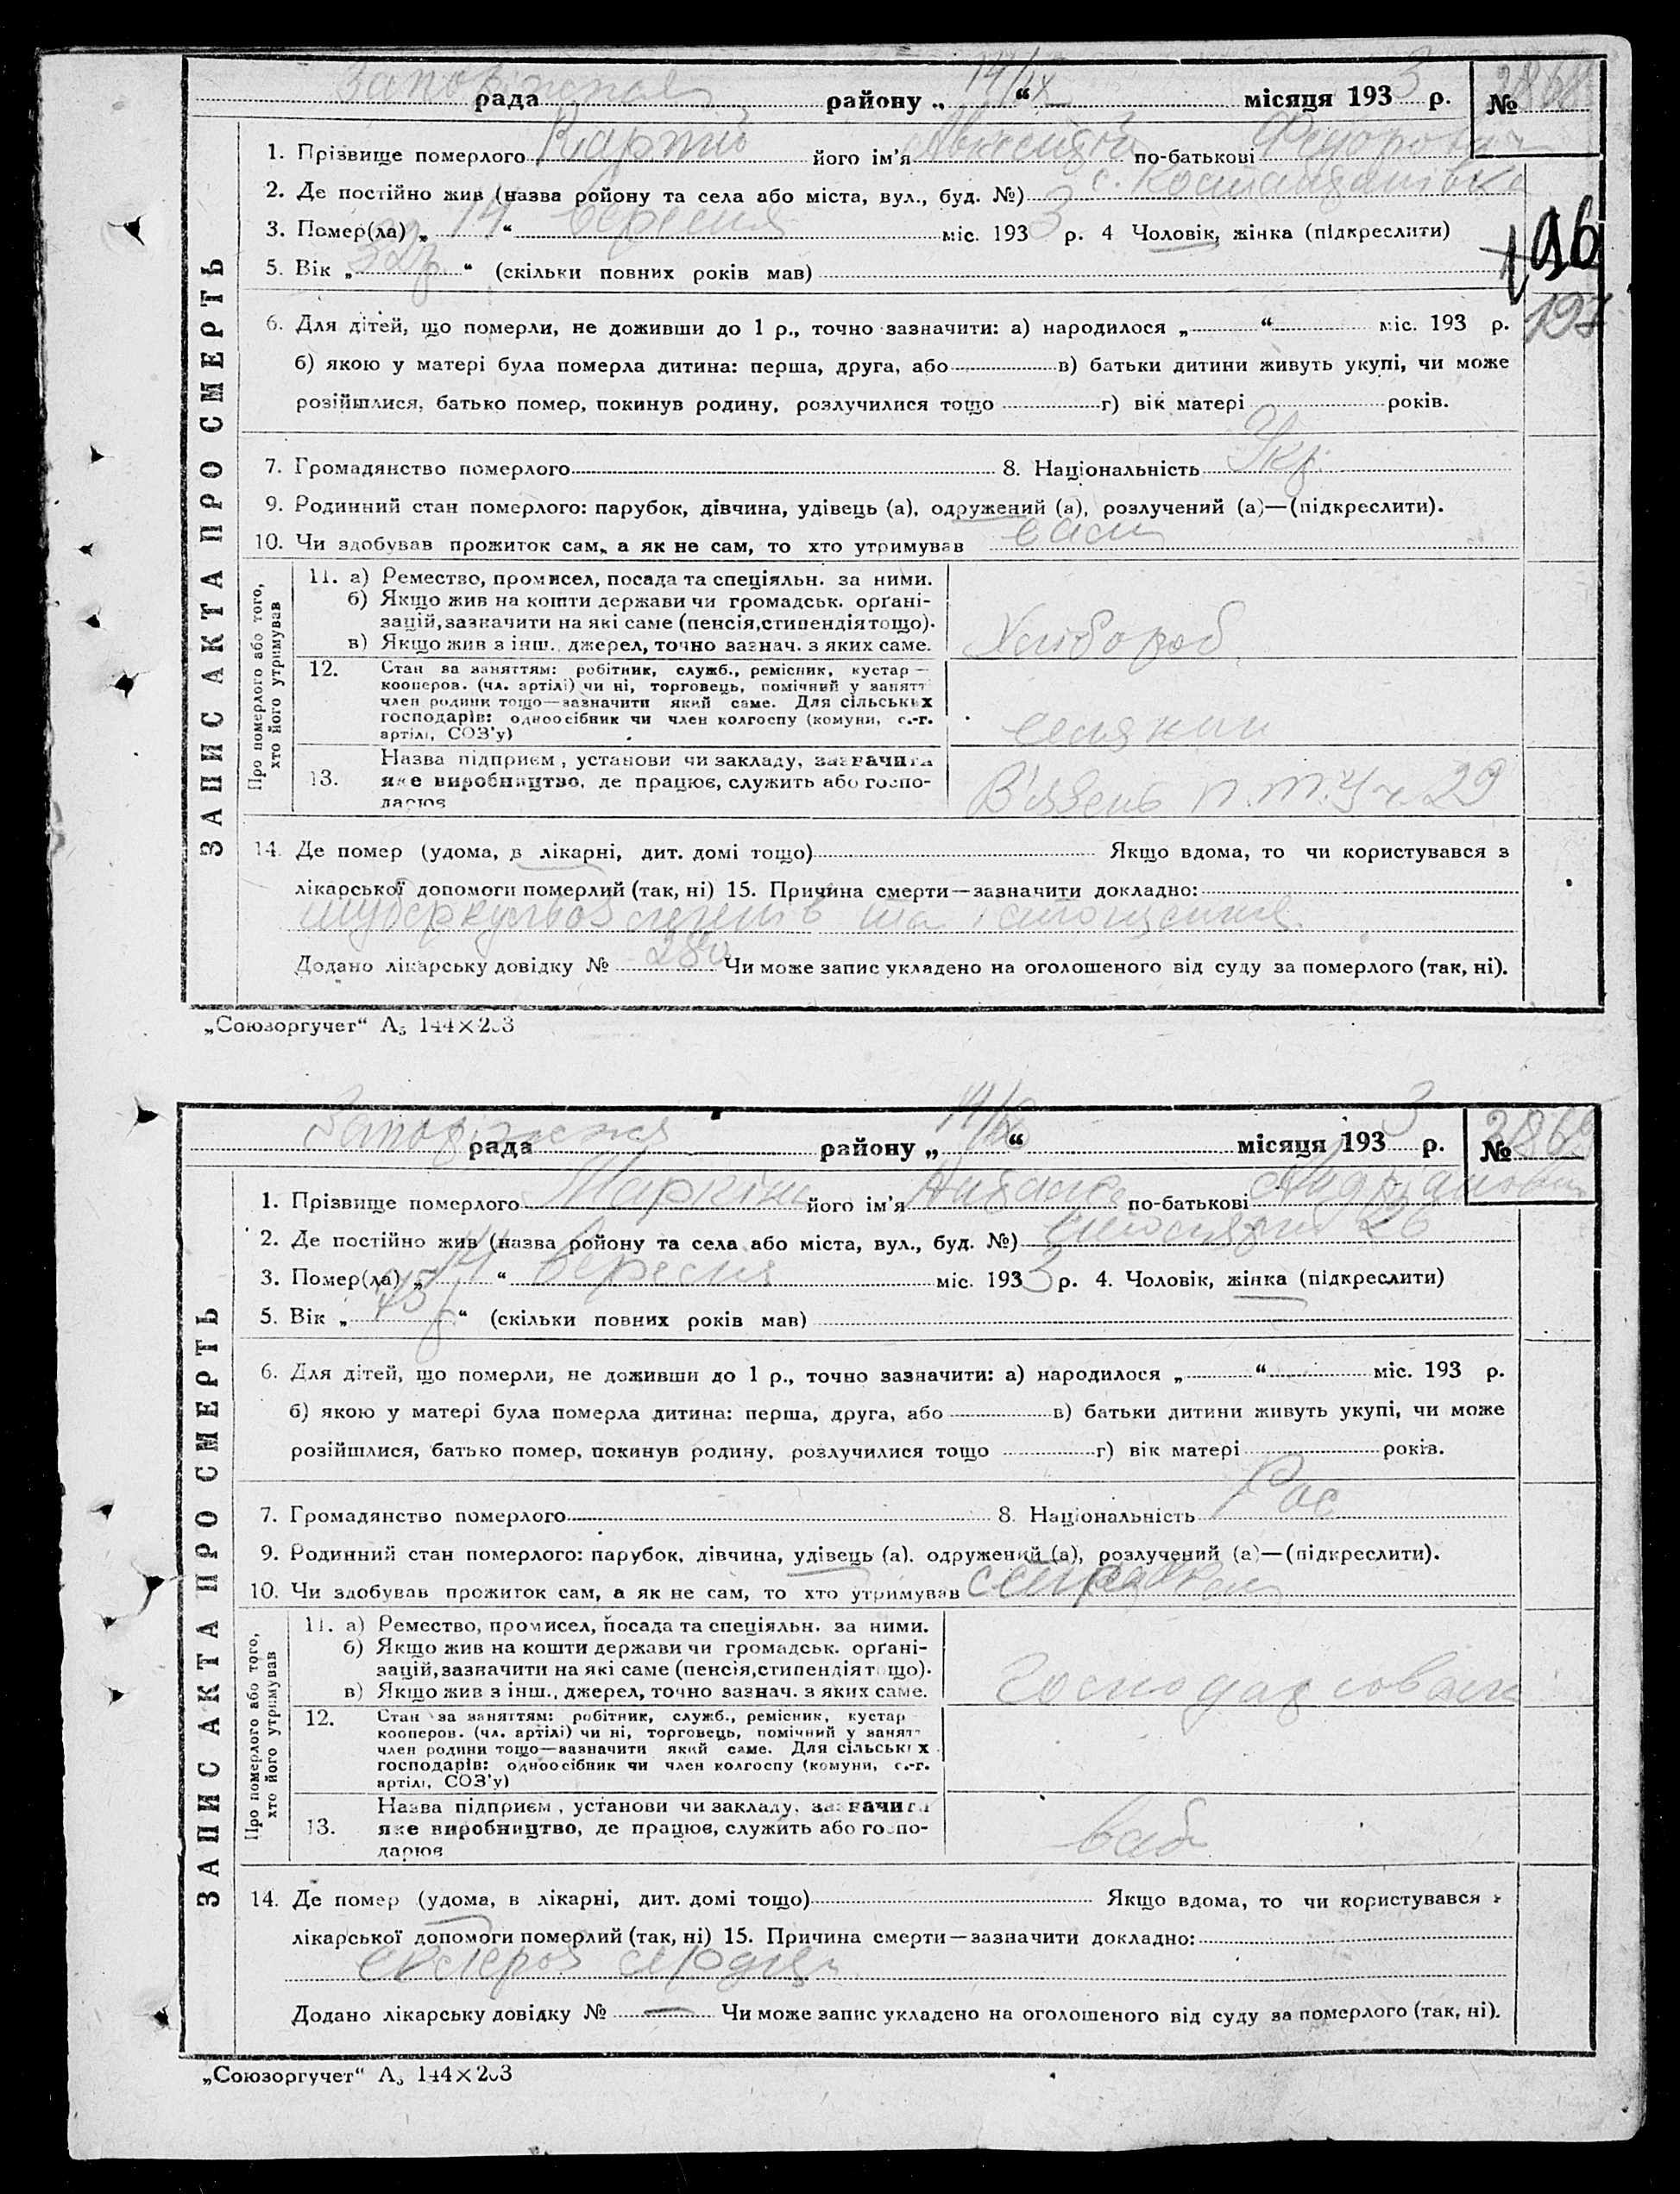 Запорізька рада району „ 14/IX “ місяця 1933 р. № 2868
1. Прізвище померлого його ім'я Авксентій по-батькові Федорович
2. Де постійно жив (назва ройону та села або міста, вул., буд. №) с.
3. Помер(ла) „ 14 “ вересня міс. 1933 р. 4 Чоловік, жінка (підкреслити)
196
5. Вік „ 32 р. “ (скільки повних років мав)
197
6. Для дітей, що померли, не доживши до 1 р., точно зазначити: а) народилося „ “ міс. 193 р.
б) якою у матері була померла дитина: перша, друга, або в) батьки дитини живуть укупі, чи може
розійшлися, батько помер, покинув родину, розлучилися тощо г) вік матері років.
7. Громадянство померлого 8. Національність Укр.
9. Родинний стан померлого: парубок, дівчина, удівець (а), одружений (а), розлучений (а)—(підкреслити).
10. Чи здобував прожиток сам, а як не сам, то хто утримував сам
ЗАПИС АКТА ПРО СМЕРТЬ
Про померлого або того, хто його утримував
11. а) Ремество, промисел, посада та спеціяльн. за ними.
б) Якщо жив на кошти держави чи громадськ. орґані-
зацій, зазначити на які саме (пенсія, стипендія тощо).
в) Якщо жив з інш., джерел, точно зазнач. з яких саме.
Хлібороб
12. Стан за заняттям: робітник, служб., ремісник, кустар —
кооперов. (чл. артілі) чи ні, торговець, помічний у занятт
член родини тощо—зазначити який саме. Для сільських
господарів: одноосібник чи член колгоспу (комуни, с.-г.
артілі, СОЗ'у)
селянин
13. Назва підприєм, установи чи закладу, зазначити
яке виробництво, де працює, служить або госпо-
дарює
В'язень п.т.У ч. 29
14. Де помер (удома, в лікарні, дит. домі тощо) Якщо вдома, то чи користувався з
лікарської допомоги померлий (так, ні) 15. Причина смерти—зазначити докладно:
туберкульоз легенів та істощення
Додано лікарську довідку № 280 Чи може запис укладено на оголошеного від суду за померлого (так, ні).
„Союзоргучет“ А₅ 144×203
Запорізька рада району „ 14/IX “ місяця 1933 р. № 2869
1. Прізвище померлого Маркіна його ім'я по-батькові
2. Де постійно жив (назва ройону та села або міста, вул., буд. №) 26
3. Помер(ла) „ 14 “ вересня міс. 1933 р. 4. Чоловік, жінка (підкреслити)
5. Вік „ 75 р “ (скільки повних років мав)
6. Для дітей, що померли, не доживши до 1 р., точно зазначити: а) народилося „ “ міс. 193 р.
б) якою у матері була померла дитина: перша, друга, або в) батьки дитини живуть укупі, чи може
розійшлися, батько помер, покинув родину, розлучилися тощо г) вік матері років.
7. Громадянство померлого 8. Національність Рос
9. Родинний стан померлого: парубок, дівчина, удівець (а). одружений (а), розлучений (а)—(підкреслити).
10. Чи здобував прожиток сам, а як не сам, то хто утримував
ЗАПИС АКТА ПРО СМЕРТЬ
Про померлого або того, хто його утримував
11. а) Ремество, промисел, посада та спеціяльн. за ними.
б) Якщо жив на кошти держави чи громадськ. орґані-
зацій, зазначити на які саме (пенсія, стипендія тощо).
в) Якщо жив з інш., джерел, точно зазнач. з яких саме.
12. Стан за заняттям: робітник, служб., ремісник, кустар
кооперов. (чл. артілі) чи ні, торговець, помічний у занятт
член родини тощо—зазначити який саме. Для сільських
господарів: одноосібник чи член колгоспу (комуни, с.-г.
артілі, СОЗ'у)
13. Назва підприєм, установи чи закладу, зазначити
яке виробництво, де працює, служить або госпо-
дарює
14. Де помер (удома, в лікарні, дит. домі тощо) Якщо вдома, то чи користувався з
лікарської допомоги померлий (так, ні) 15. Причина смерти—зазначити докладно:
склероз сердця
Додано лікарську довідку № — Чи може запис укладено на оголошеного від суду за померлого (так, ні).
„Союзоргучет“ А₅ 144×203